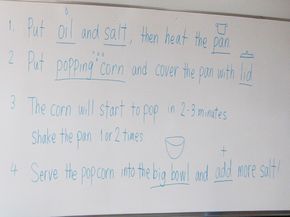 1. Put oil and salt, then heat the pan
2 Put popping corn and cover the pan with lid
3 The corn will start to pop in 2-3 minutes
shake the pan 1 or 2 times
4 Serve the popcorn into the big bowl and add more salt!